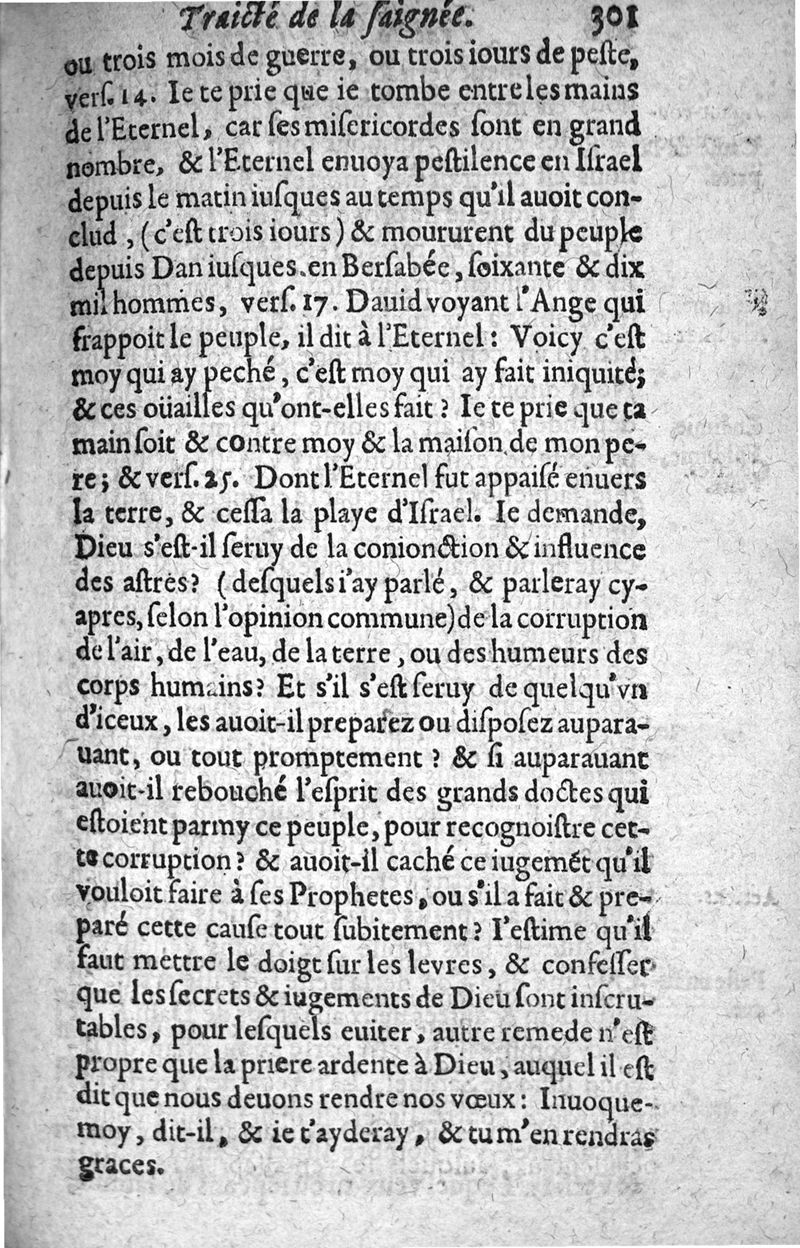 Traicté de la ſaignée. 301
ou trois mois de guerre, ou trois iours de peſte,
verſ. 14. Ie te prie que ie tombe entre les mains
de l'Eternel, car ſes miſericordes ſont en grand
nombre, & l'Eternel enuoya peſtilence en Iſrael
depuis le matin iuſques au temps qu'il auoit con-
clud, (c'eſt trois iours) & moururent du peuple
depuis Dan iuſques en Berſabée, ſoixante & dix
mil hommes, verſ. 17. Dauid voyant l'Ange qui
frappoit le peuple, il dit à l'Eternel: Voicy c'eſt
moy qui ay peché, c'eſt moy qui ay fait iniquité;
& ces oüailles qu'ont-elles fait? Ie te prie que ta
main ſoit & contre moy & la maiſon de mon pe-
re; & verſ. 25. Dont l'Eternel fut appaiſé enuers
la terre, & ceſſa la playe d'Iſrael. Ie demande,
Dieu s'eſt-il ſeruy de la conionction & influence
des aſtres? (deſquels i'ay parlé, & parleray cy-
apres, ſelon l'opinion commune) de la corruption
de l'air, de l'eau, de la terre, ou des humeurs des
corps humains? Et s'il s'eſt ſeruy de quelqu'vn
d'iceux, les auoit-il preparez ou diſpoſez aupara-
uant, ou tout promptement? & ſi auparauant
auoit-il rebouché l'eſprit des grands doctes qui
eſtoient parmy ce peuple, pour recognoiſtre cet-
te corruption? & auoit-il caché ce iugemét qu'il
vouloit faire à ſes Prophetes, ou s'il a fait & pre-
paré cette cauſe tout ſubitement? I'eſtime qu'il
faut mettre le doigt ſur les levres, & confeſſer
que les ſecrets & iugements de Dieu ſont inſcru-
tables, pour leſquels euiter, autre remede n'eſt
propre que la priere ardente à Dieu, auquel il eſt
dit que nous deuons rendre nos vœux: Inuoque-
moy, dit-il, & ie t'ayderay, & tu m'en rendras
graces.